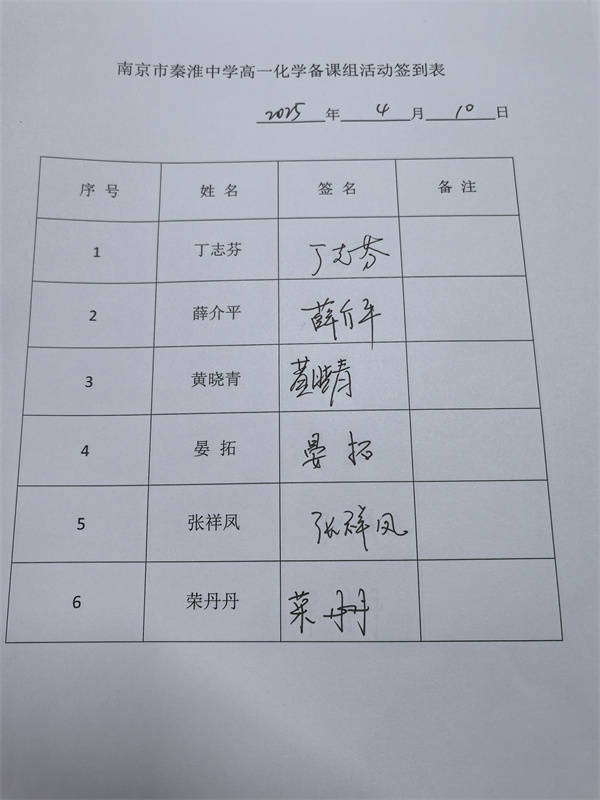 南京市秦淮中学高一化学备课组活动签到表
2025 年 4 月 10 日
序号 姓名 签名 备注
1 丁志芬 丁志芬
2 薛介平 薛介平
3 黄晓青 黄晓青
4 晏拓 晏拓
5 张祥凤 张祥凤
6 荣丹丹 荣丹丹